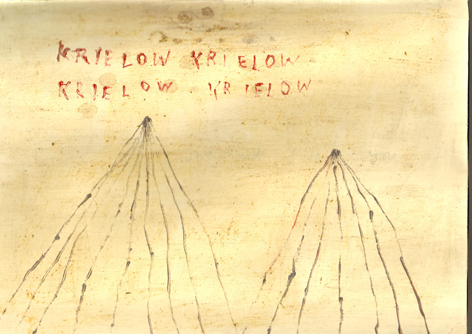 KRIELOW KRIELOW
KRIELOW KRIELOW